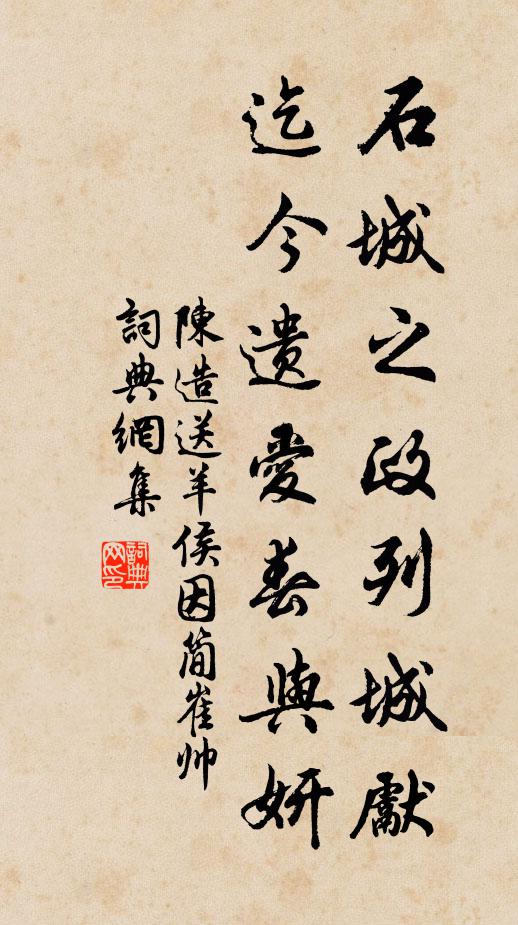 石城之政列城獻
迄今遺愛春與妍
陳造送羊侯因簡崔帥
詞典網集
詞典網印